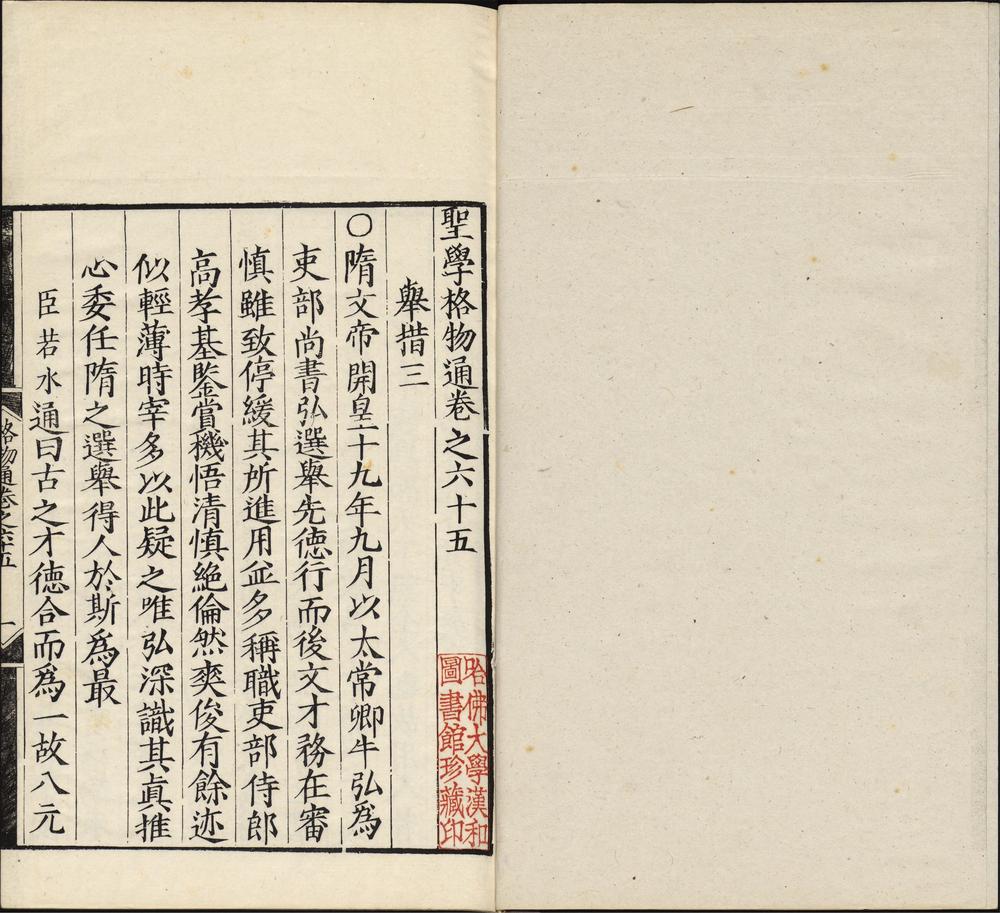 聖學格物通卷之六十五
舉措三
○隋文帝開皇十九年九月以太常卿牛弘爲
吏部尚書弘選舉先德行而後文才務在審
慎雖致停緩其所進用並多稱職吏部侍郎
高孝基鑒賞機悟清慎絶倫然爽俊有餘迹
似輕薄時宰多以此疑之唯弘深識其眞推
心委任隋之選舉得人於斯爲最
臣若水通曰古之才德合而爲一故八元
格物通卷之六十五
一
哈佛大學漢和
圖書館珍藏印